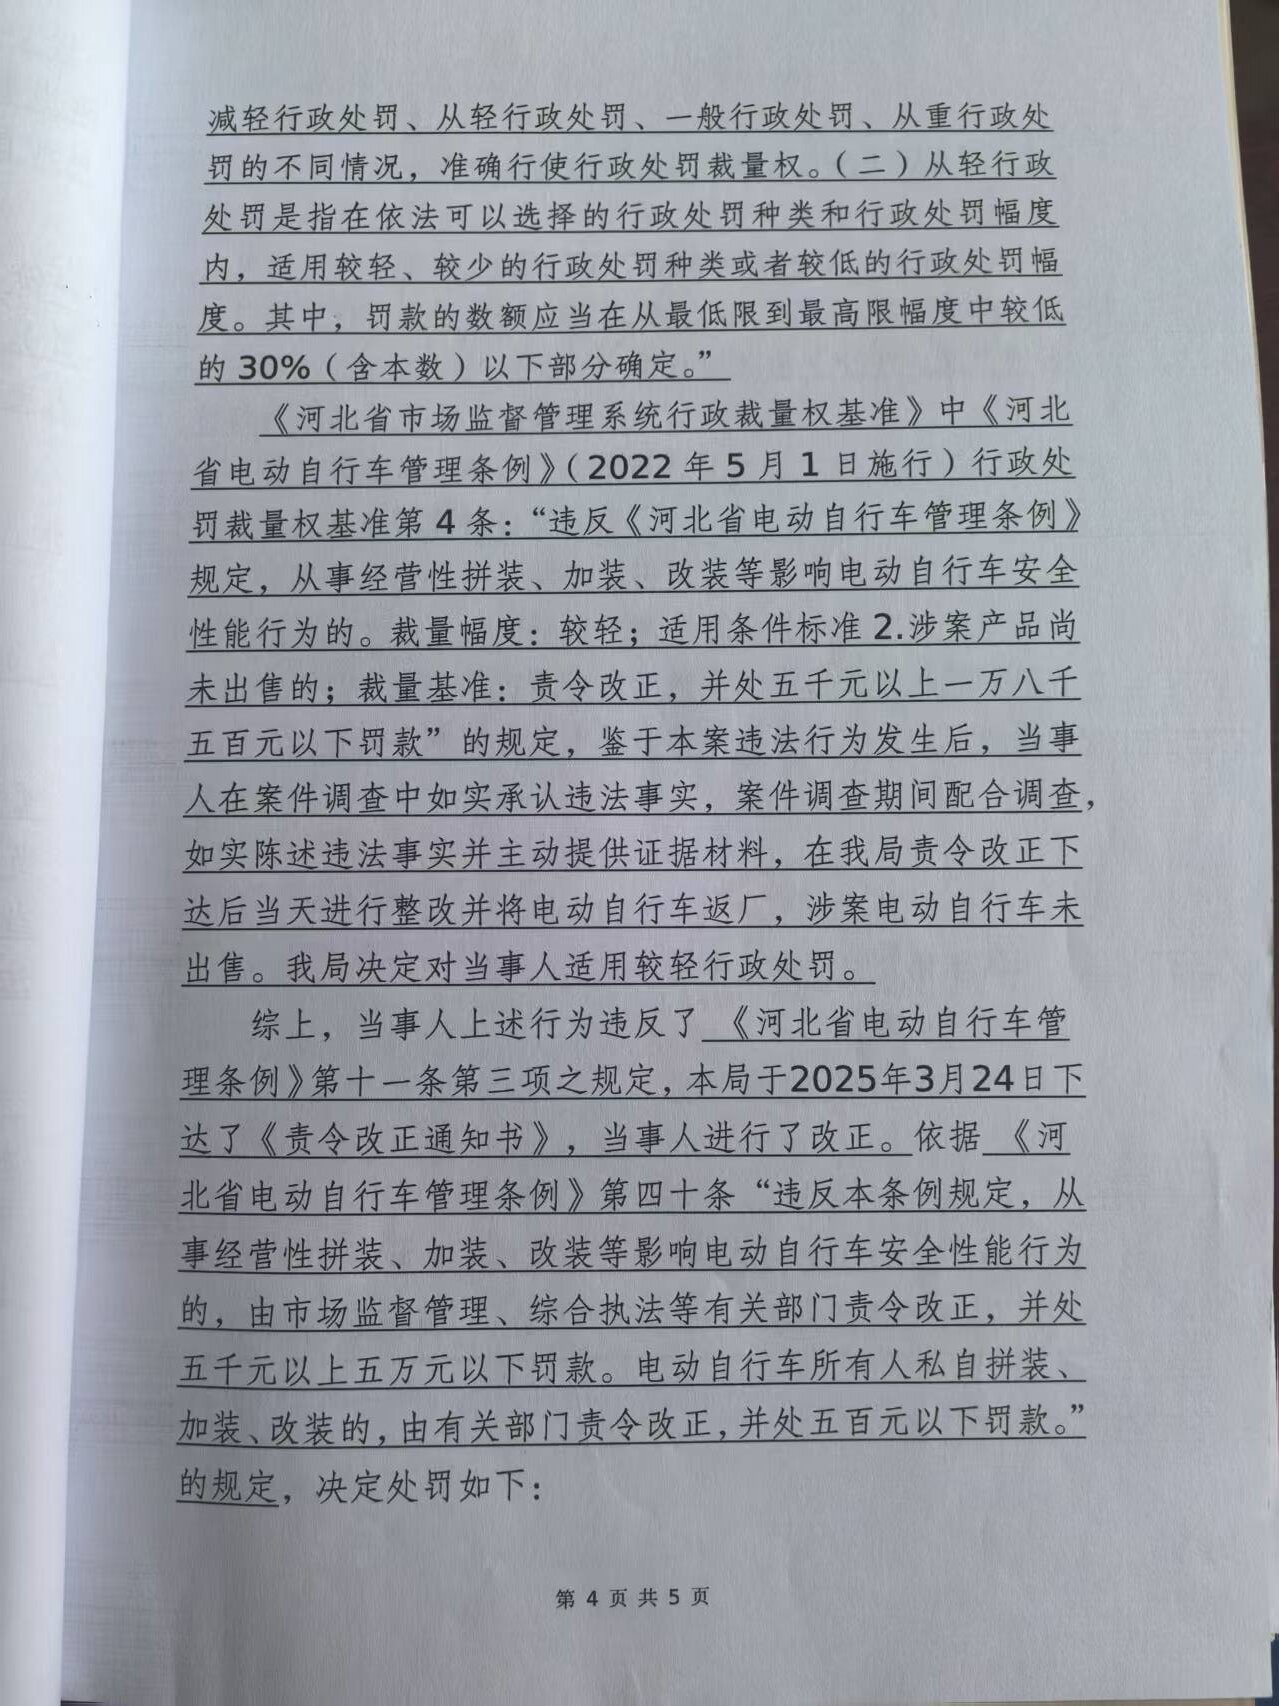 减轻行政处罚、从轻行政处罚、一般行政处罚、从重行政处
罚的不同情况，准确行使行政处罚裁量权。（二）从轻行政
处罚是指在依法可以选择的行政处罚种类和行政处罚幅度
内，适用较轻、较少的行政处罚种类或者较低的行政处罚幅
度。其中，罚款的数额应当在从最低限到最高限幅度中较低
的 30%（含本数）以下部分确定。”
《河北省市场监督管理系统行政裁量权基准》中《河北
省电动自行车管理条例》（2022 年 5 月 1 日施行）行政处
罚裁量权基准第 4 条：“违反《河北省电动自行车管理条例》
规定，从事经营性拼装、加装、改装等影响电动自行车安全
性能行为的。裁量幅度：较轻；适用条件标准 2.涉案产品尚
未出售的；裁量基准：责令改正，并处五千元以上一万八千
五百元以下罚款” 的规定，鉴于本案违法行为发生后，当事
人在案件调查中如实承认违法事实，案件调查期间配合调查，
如实陈述违法事实并主动提供证据材料，在我局责令改正下
达后当天进行整改并将电动自行车返厂，涉案电动自行车未
出售。我局决定对当事人适用较轻行政处罚。
综上，当事人上述行为违反了 《河北省电动自行车管
理条例》第十一条第三项之规定，本局于2025年3月24日下
达了《责令改正通知书》，当事人进行了改正。依据 《河
北省电动自行车管理条例》第四十条“违反本条例规定，从
事经营性拼装、加装、改装等影响电动自行车安全性能行为
的，由市场监督管理、综合执法等有关部门责令改正，并处
五千元以上五万元以下罚款。电动自行车所有人私自拼装、
加装、改装的，由有关部门责令改正，并处五百元以下罚款。”
的规定，决定处罚如下：
第 4 页 共 5 页